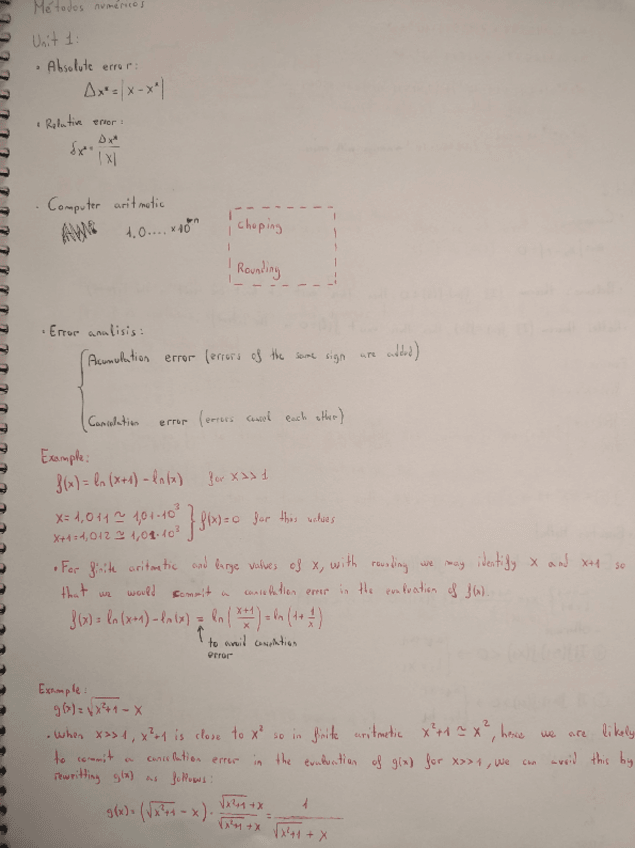 Métodos numéricos
Unit 1:
• Absolute error:
Δx* = |x - x*|
• Relative error:
δx* = Δx* / |x|
• Computer aritmetic
1.0.... ×10^±n
Choping
Rounding
• Error analisis:
Acumulation error (errors of the same sign are added)
Cancelation error (errors cancel each other)
Example:
f(x) = ln(x+1) - ln(x) for x>>1
x = 1,011 ≃ 1,01·10³
x+1 = 1,012 ≃ 1,01·10³ } f(x) = 0 for this values
• For finite aritmetic and large values of x, with rounding we may identify x and x+1 so
that we would commit a cancelation error in the evaluation of f(x).
f(x) = ln(x+1) - ln(x) = ln((x+1)/x) = ln(1 + 1/x)
↑ to avoid cancelation
error
Example:
g(x) = √(x²+1) - x
• When x>>1, x²+1 is close to x² so in finite aritmetic x²+1 ≃ x², hence we are likely
to commit a cancellation error in the evaluation of g(x) for x>>1, we can avoid this by
rewritting g(x) as follows:
g(x) = (√(x²+1) - x) · (√(x²+1) + x)/(√(x²+1) + x) = 1/(√(x²+1) + x)